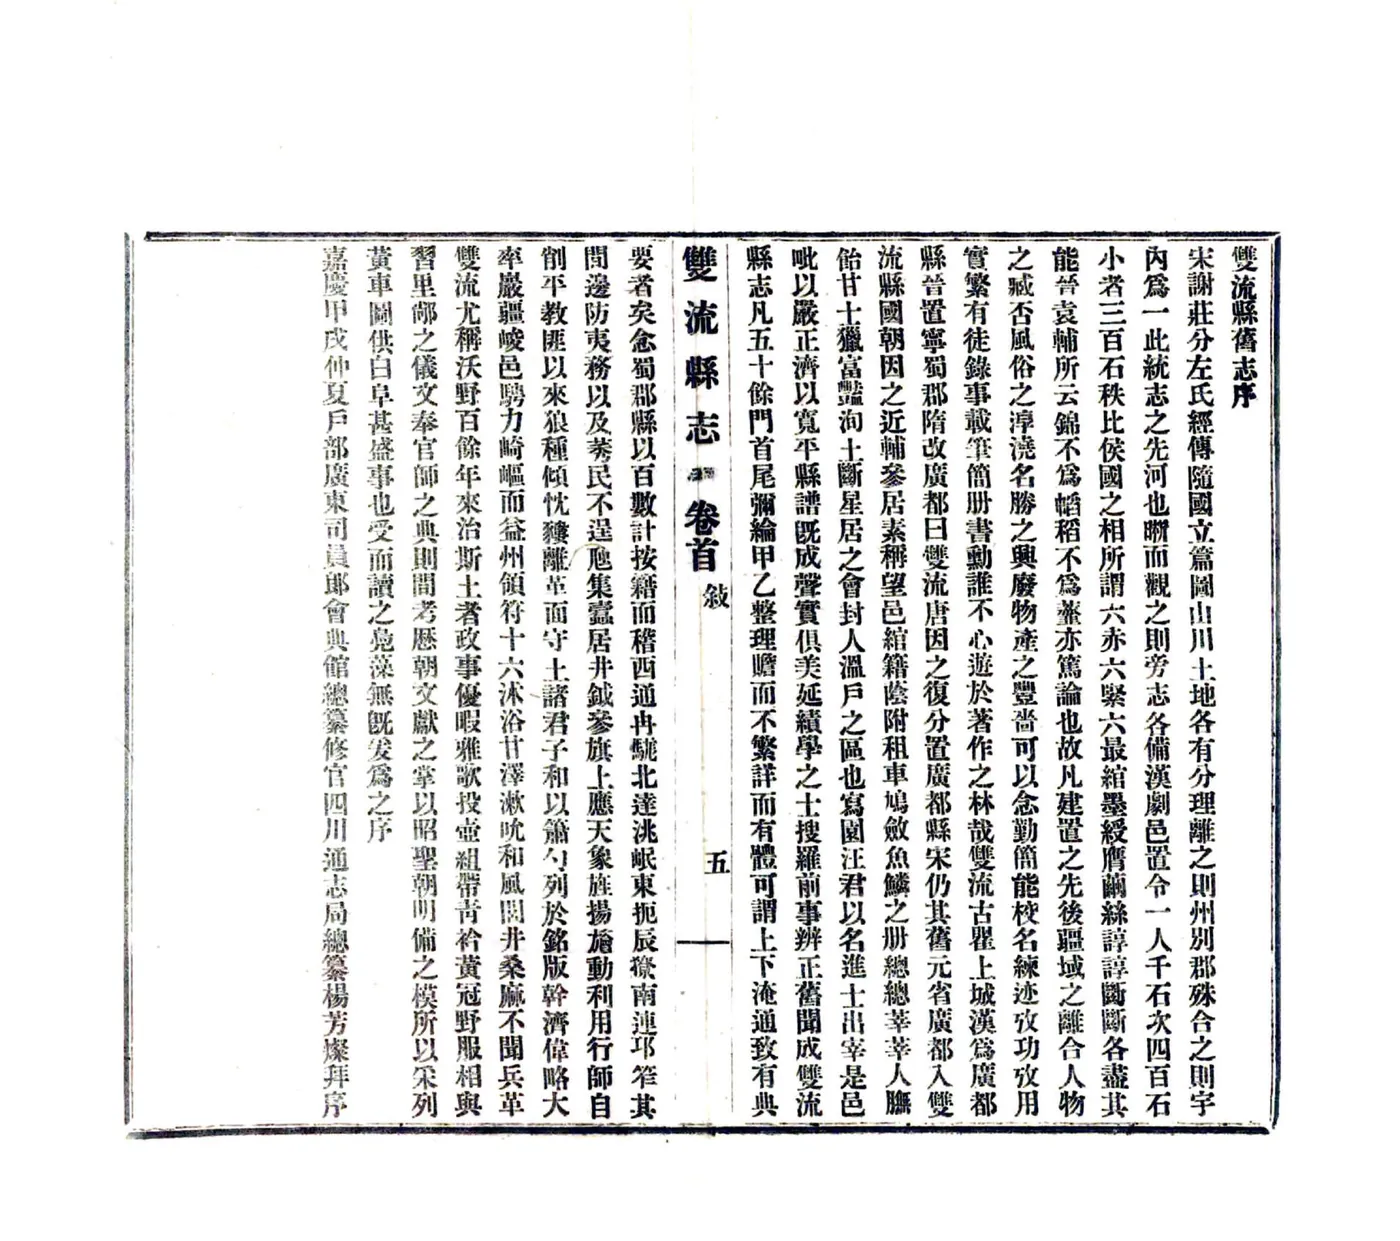 雙流縣舊志序
宋謝莊分左氏經傳隨國立篇圖山川土地各有分理離之則州別郡殊合之則宇
內爲一此統志之先河也瞯而觀之則旁志各備漢劇邑置令一人千石次四百石
小者三百石秩比侯國之相所謂六赤六緊六最綰墨綬膺繭絲諄諄斷斷各盡其
能晉袁輔所云錦不爲幍稻不爲虀亦篤論也故凡建置之先後疆域之離合人物
之臧否風俗之淳澆名勝之興廢物產之豐嗇可以念勤簡能校名練迹攷功攷用
實繁有徒錄事載筆簡册書勳誰不心遊於著作之林哉雙流古瞿上城漢爲廣都
縣晉置寧蜀郡隋改廣都曰雙流唐因之復分置廣都縣宋仍其舊元省廣都入雙
流縣國朝因之近輔參居素稱望邑綰籍蔭附租車鳩斂魚鱗之册總總莘莘人膴
飴甘士獵富豔洵土斷星居之會封人溫戶之區也寫園汪君以名進士出宰是邑
呲以嚴正濟以寬平縣譜旣成聲實俱美延績學之士搜羅前事辨正舊聞成雙流
縣志凡五十餘門首尾彌綸甲乙整理贍而不繁詳而有體可謂上下淹通致有典
雙流縣志 卷首 敍 五
要者矣念蜀郡縣以百數計按籍而稽西通冉駹北達洮岷東扼辰獠南連邛笮其
間邊防夷務以及莠民不逞虺集蠹居井鉞參旗上應天象旌揚旆動利用行師自
削平教匪以來狼種傾忱獞離革面守土諸君子和以簫勺列於銘版幹濟偉略大
率嚴疆峻邑騁力崎嶇而益州領符十六沐浴甘澤漱吮和風閭井桑麻不聞兵革
雙流尤稱沃野百餘年來治斯土者政事優暇雅歌投壺組帶靑衿黃冠野服相與
習里鄰之儀文奉官師之典則間考歷朝文獻之掌以昭聖朝明備之模所以采列
黃車圖供白阜甚盛事也受而讀之鳧藻無旣爰爲之序
嘉慶甲戌仲夏戶部廣東司員郎會典館總纂修官四川通志局總纂楊芳燦拜序